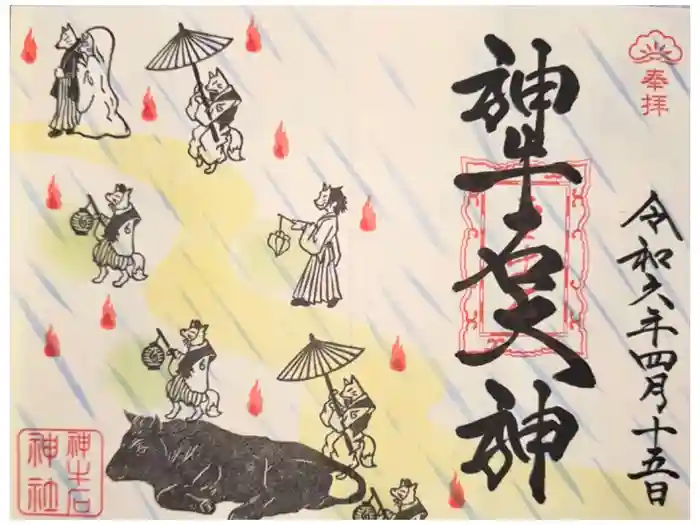 奉拝
令和六年四月十五日
神牛石大神
神牛石
神社